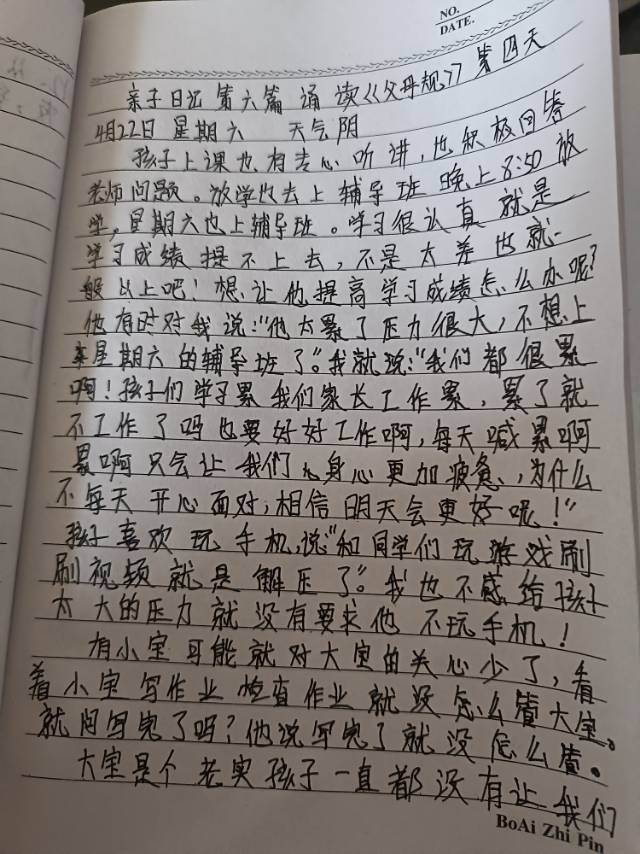 NO.
DATE.
亲子日记 第六篇 诵读《父母规》 第四天
4月22日 星期六 天气阴
孩子上课也有专心听讲,也积极回答
老师问题。放学也去上辅导班 晚上8:50放
学,星期六也上辅导班。学习很认真 就是
学习成绩提不上去,不是太差也就一
般以上吧!想让他提高学习成绩怎么办呢?
他有时对我说:“他太累了压力很大,不想上
星期六的辅导班了”。我就说:“我们都很累
啊!孩子们学习累我们家长工作累,累了就
不工作了吗也要好好工作啊,每天喊累啊
累啊只会让我们身心更加疲惫,为什么
不每天开心面对,相信明天会更好呢!”
孩子喜欢玩手机,说“和同学们玩游戏刷
刷视频就是解压了”。我也不感给孩子
太大的压力就没有要求他不玩手机!
有小宝可能就对大宝的关心少了,看
着小宝写作业检查作业就没怎么管大宝。
就问写完了吗?他说写完了就没怎么管。
大宝是个老实孩子一直都没有让我们
BoAi Zhi Pin